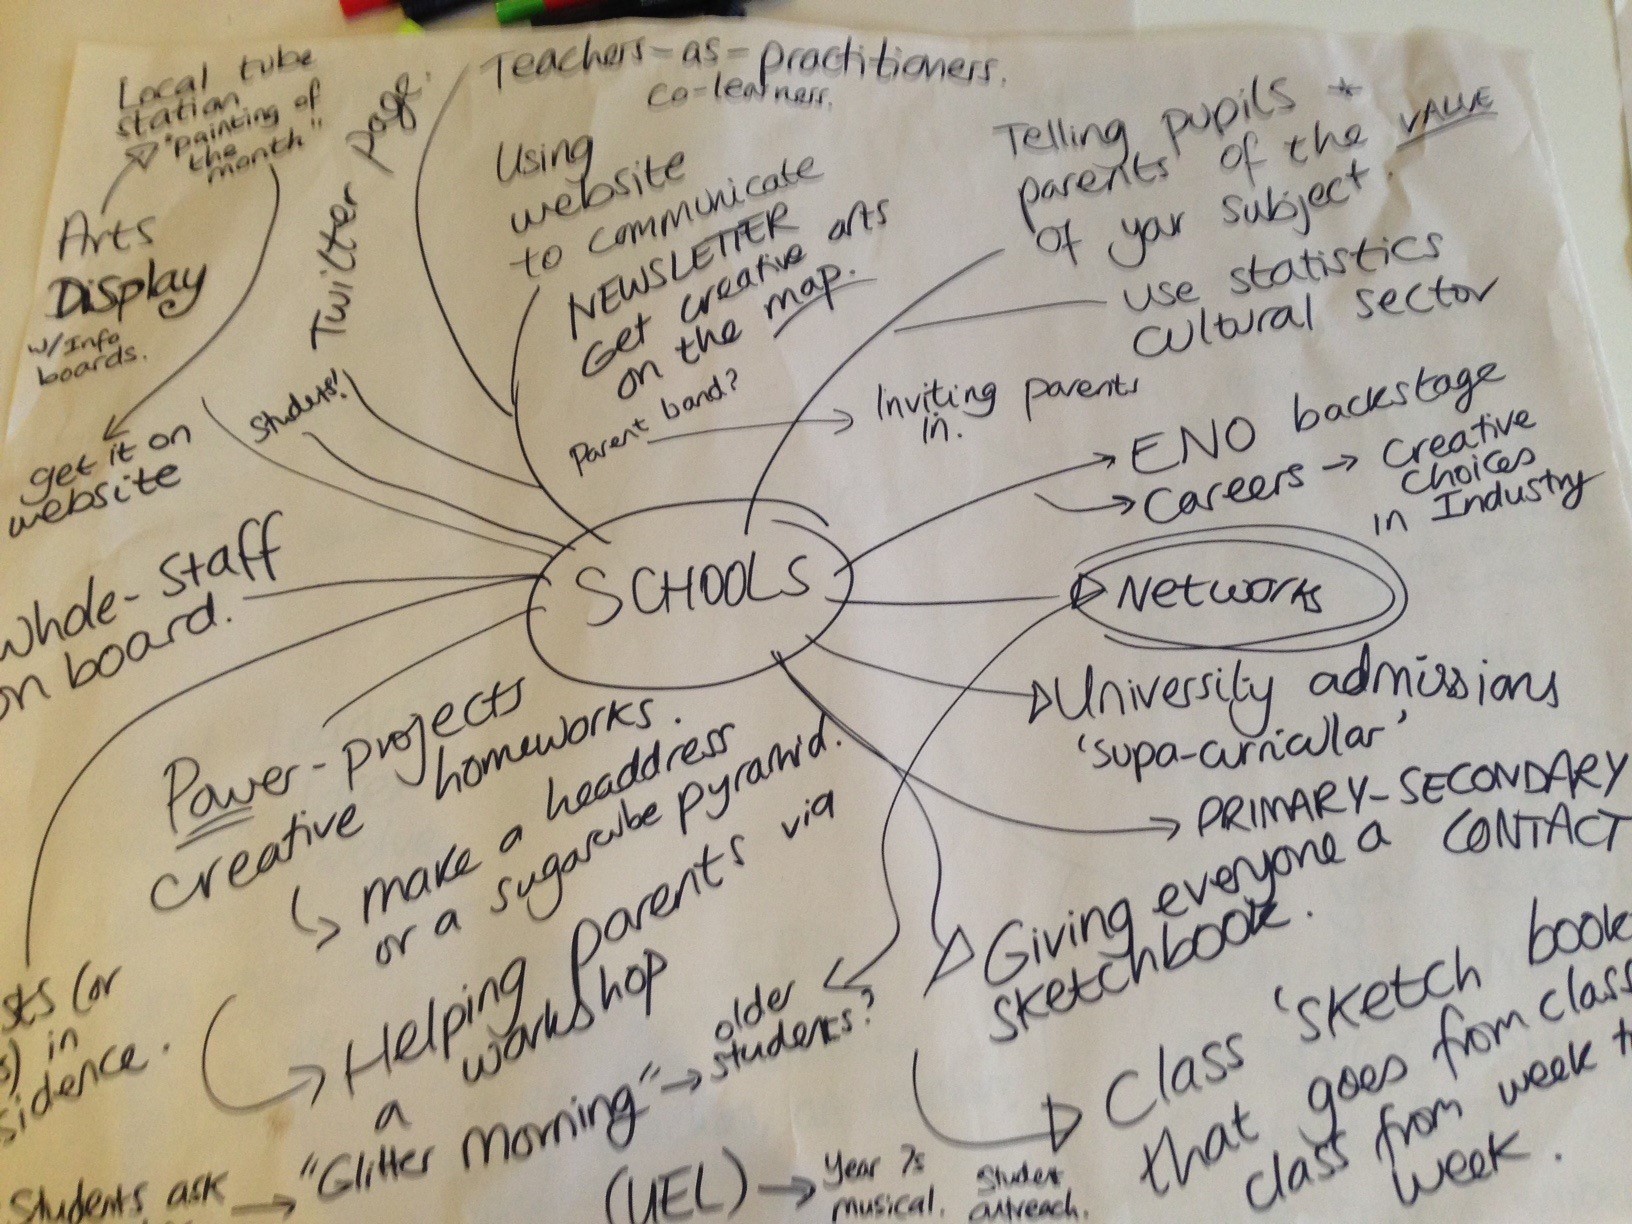 Local tube
station
"painting of
the
month"
Arts
Display
w/Info
boards.
get it on
website
Twitter page.
Students!
Teachers-as-practitioners.
co-learness.
Using
website
to communicate
NEWSLETTER
Get creative arts
on the map.
Parent band?
Inviting parents
in.
Telling pupils *
parents of the VALUE
of your subject.
use statistics
cultural sector
ENO backstage
Careers → Creative
choices
in Industry
SCHOOLS
Networks
University admissions
'supa-curricular'
PRIMARY-SECONDARY
CONTACT
Giving everyone a
sketchbook.
Class 'sketch book
that goes from class
class from week
week.
Whole-staff
on board.
Power-projects
creative homeworks.
make a headdress
or a sugarcube pyramid.
Helping parents via
a workshop
"Glitter Morning" → older
students?
in
Students ask
(UEL) → Year 7s
musical.
Student
outreach.